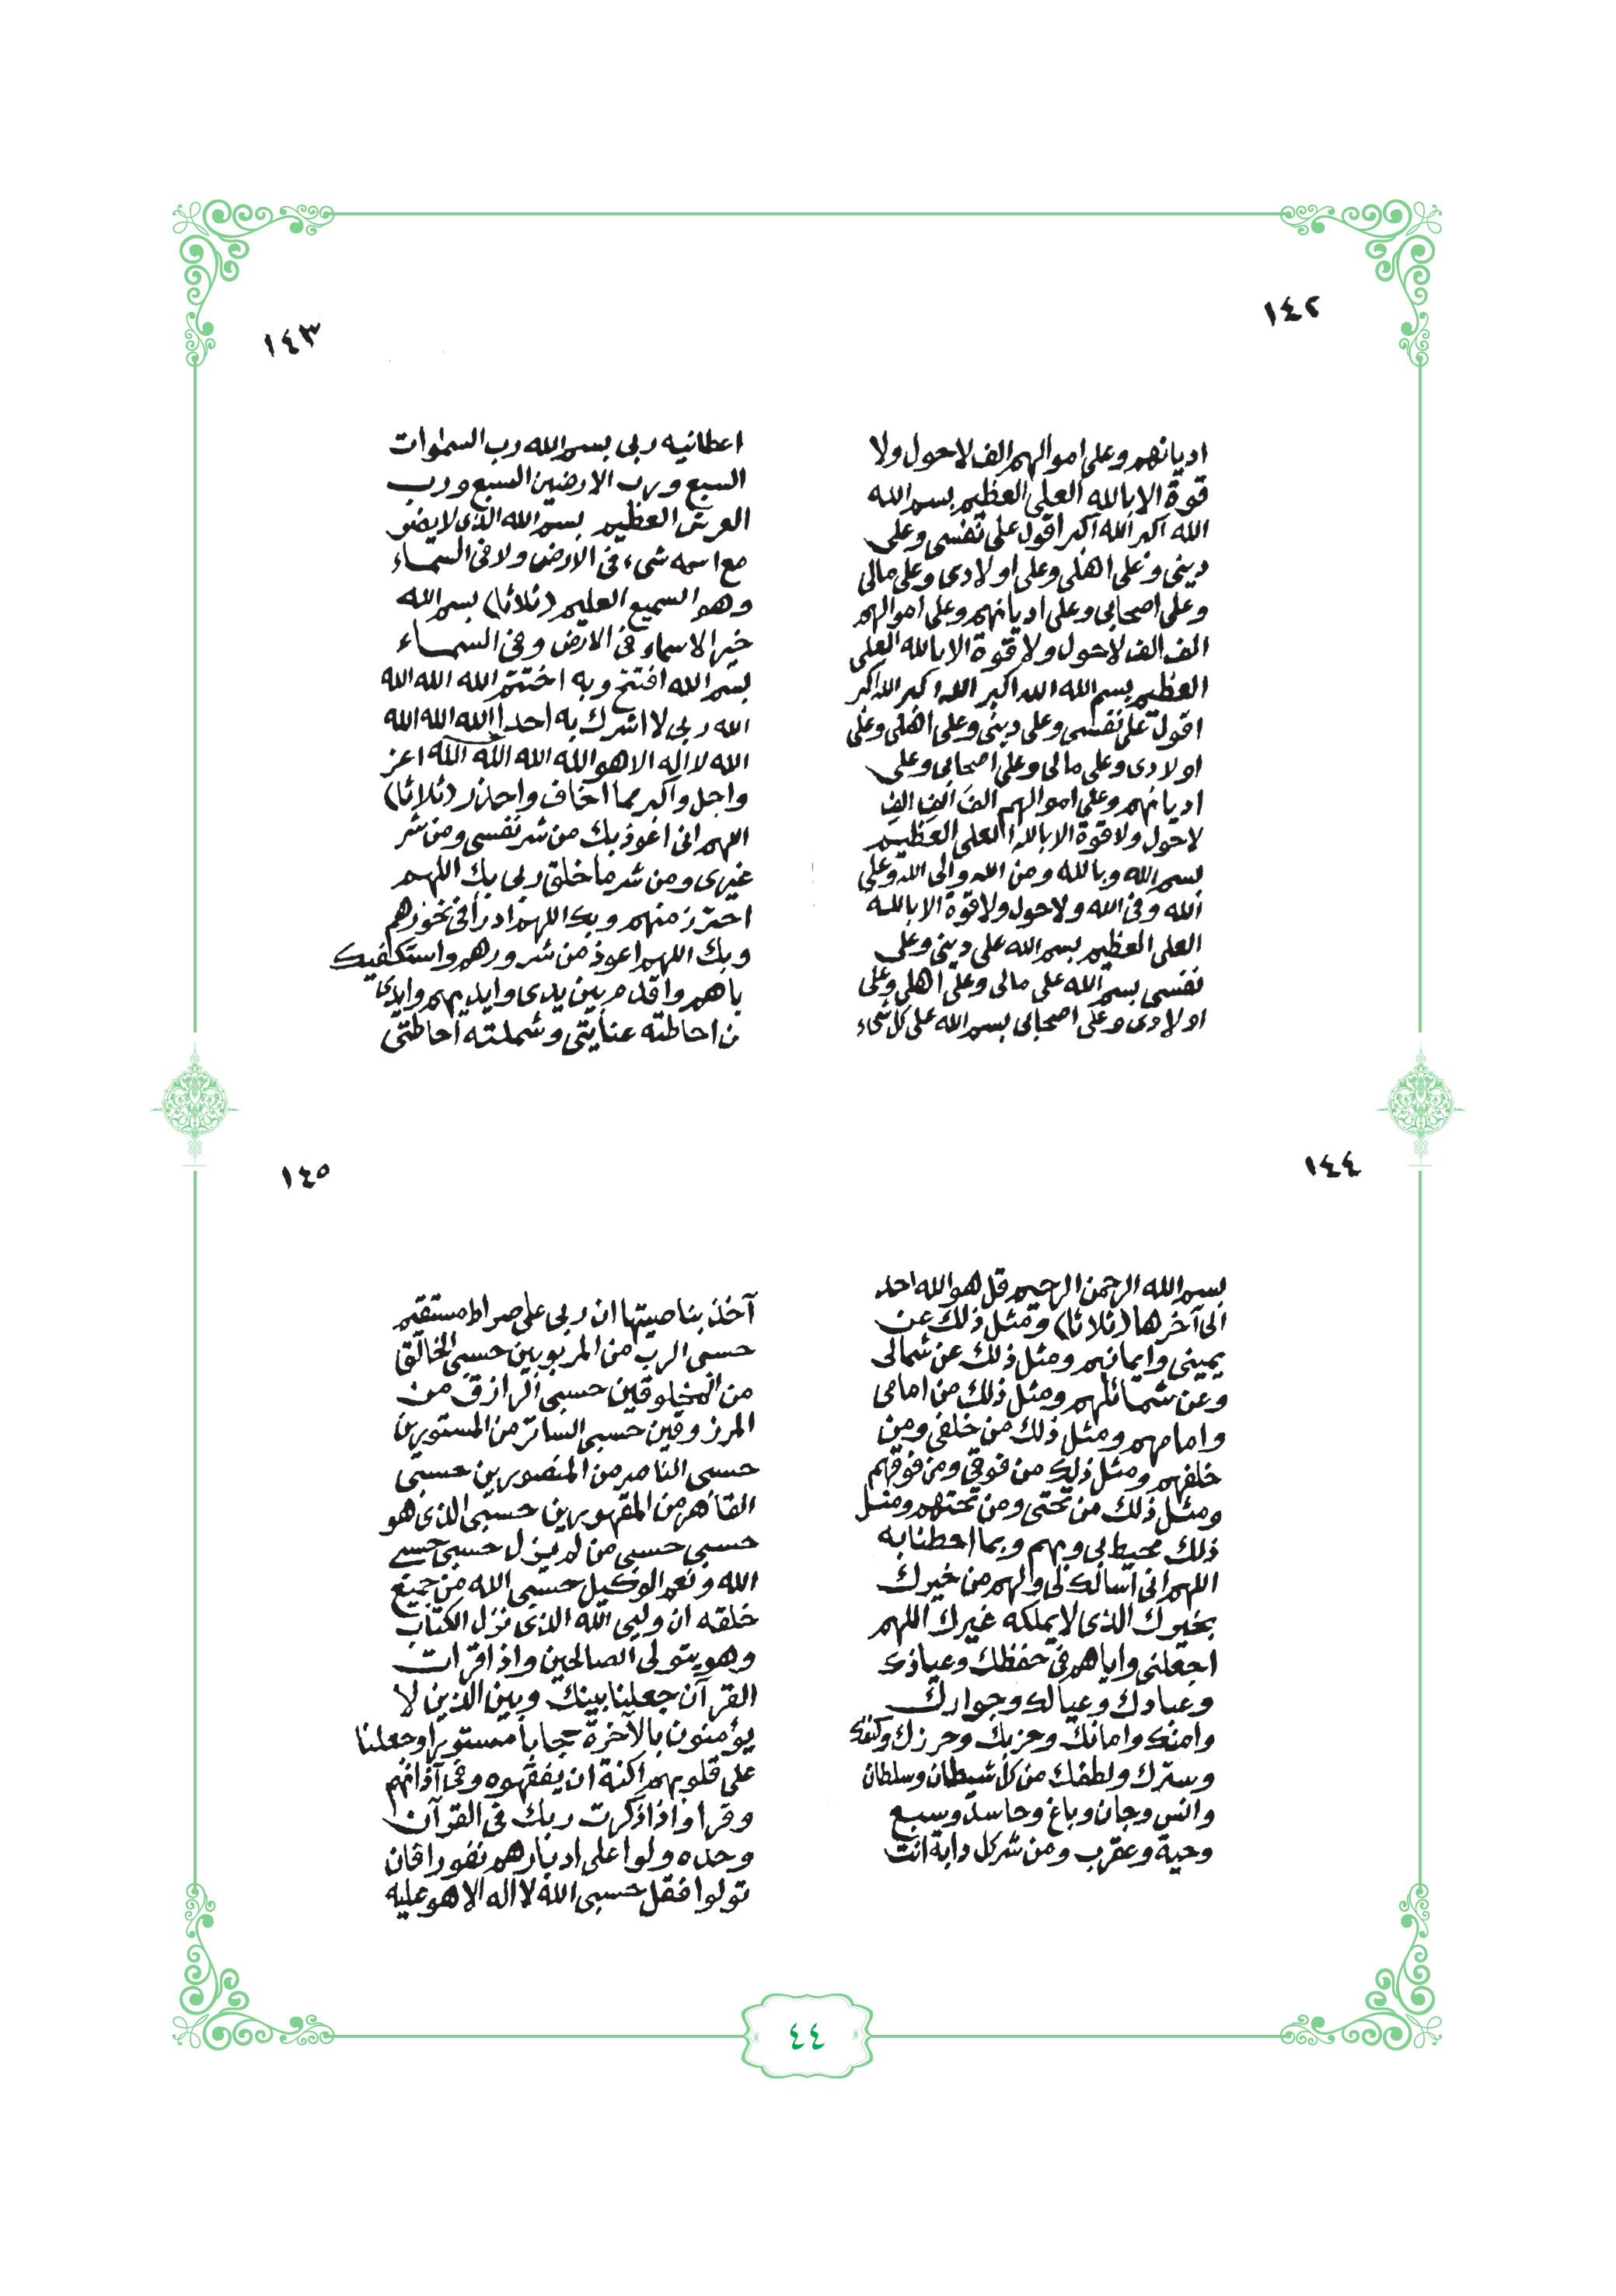 ١٤٢
اديانهم وعلى اموالهم الف لاحول ولا
قوة الا بالله العلى العظيم بسم الله
الله اكبر الله اكبر اقول على نفسى وعلى
دينى وعلى اهلى وعلى اولادى وعلى مالى
وعلى اصحابى وعلى اديانهم وعلى اموالهم
الف الف لاحول ولا قوة الا بالله العلى
العظيم بسم الله الله اكبر الله اكبر الله اكبر
اقول على نفسى وعلى دينى وعلى اهلى وعلى
اولادى وعلى مالى وعلى اصحابى وعلى
اديانهم وعلى اموالهم الف الف الف
لاحول ولا قوة الا بالله العلى العظيم
بسم الله وبالله ومن الله والى الله وعلى
الله وفى الله ولاحول ولا قوة الا بالله
العلى العظيم بسم الله على دينى وعلى
نفسى بسم الله على مالى وعلى اهلى وعلى
اولادى وعلى اصحابى بسم الله على كل شىء
١٤٣
اعطانيه ربى بسم الله رب السموات
السبع ورب الارضين السبع ورب
العرش العظيم بسم الله الذى لايضر
مع اسمه شىء فى الارض ولا فى السماء
وهو السميع العليم (ثلاثا) بسم الله
خير الاسماء فى الارض وفى السماء
بسم الله افتتح وبه اختتم الله الله الله
الله ربى لا اشرك به احدا الله الله الله
الله لا اله الا هو الله الله الله الله اعز
واجل واكبر مما اخاف واحاذر (ثلاثا)
اللهم انى اعوذ بك من شر نفسى ومن شر
غيرى ومن شر ما خلق ربى بك اللهم
احترز منهم وبك اللهم ادرأ فى نحورهم
وبك اللهم اعوذ من شرورهم واستكفيك
اياهم واقدم بين يدى وايديهم وايدى
من احاطته عنايتى وشملته احاطتى
١٤٤
بسم الله الرحمن الرحيم قل هو الله احد
الى آخرها (ثلاثا) ومثل ذلك عن
يمينى وايمانهم ومثل ذلك عن شمالى
وعن شمائلهم ومثل ذلك من امامى
وامامهم ومثل ذلك من خلفى ومن
خلفهم ومثل ذلك من فوقى ومن فوقهم
ومثل ذلك من تحتى ومن تحتهم ومثل
ذلك محيط بى وبهم وبما احطنا به
اللهم انى اسالك لى ولهم من خيرك
بخيرك الذى لايملكه غيرك اللهم
اجعلنى واياهم فى حفظك وعياذك
وعبادك وعيالك وجوارك
وامنك وامانك وحزبك وحرزك وكنفك
وسترك ولطفك من كل شيطان وسلطان
وانس وجان وباغ وحاسد وسبع
وحية وعقرب ومن شر كل دابة انت
١٤٥
آخذ بناصيتها ان ربى على صراط مستقيم
حسبى الرب من المربوبين حسبى الخالق
من المخلوقين حسبى الرازق من
المرزوقين حسبى الساتر من المستورين
حسبى الناصر من المنصورين حسبى
القاهر من المقهورين حسبى الذى هو
حسبى حسبى من لم يزل حسبى حسبى
الله ونعم الوكيل حسبى الله من جميع
خلقه ان وليى الله الذى نزل الكتاب
وهو يتولى الصالحين واذا قرات
القرآن جعلنا بينك وبين الذين لا
يؤمنون بالآخرة حجابا مستورا وجعلنا
على قلوبهم اكنة ان يفقهوه وفى آذانهم
وقرا واذا ذكرت ربك فى القرآن
وحده ولوا على ادبارهم نفورا فان
تولوا فقل حسبى الله لا اله الا هو عليه
٤٤